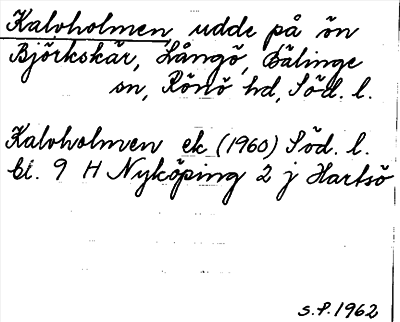 Kalvholmen, udde på ön
Björkskär, Långö, Bälinge
sn, Rönö hd, Söd. l.
Kalvholmen ek (1960) Söd. l.
bl. 9 H Nyköping 2 j Hartsö
S.P. 1962